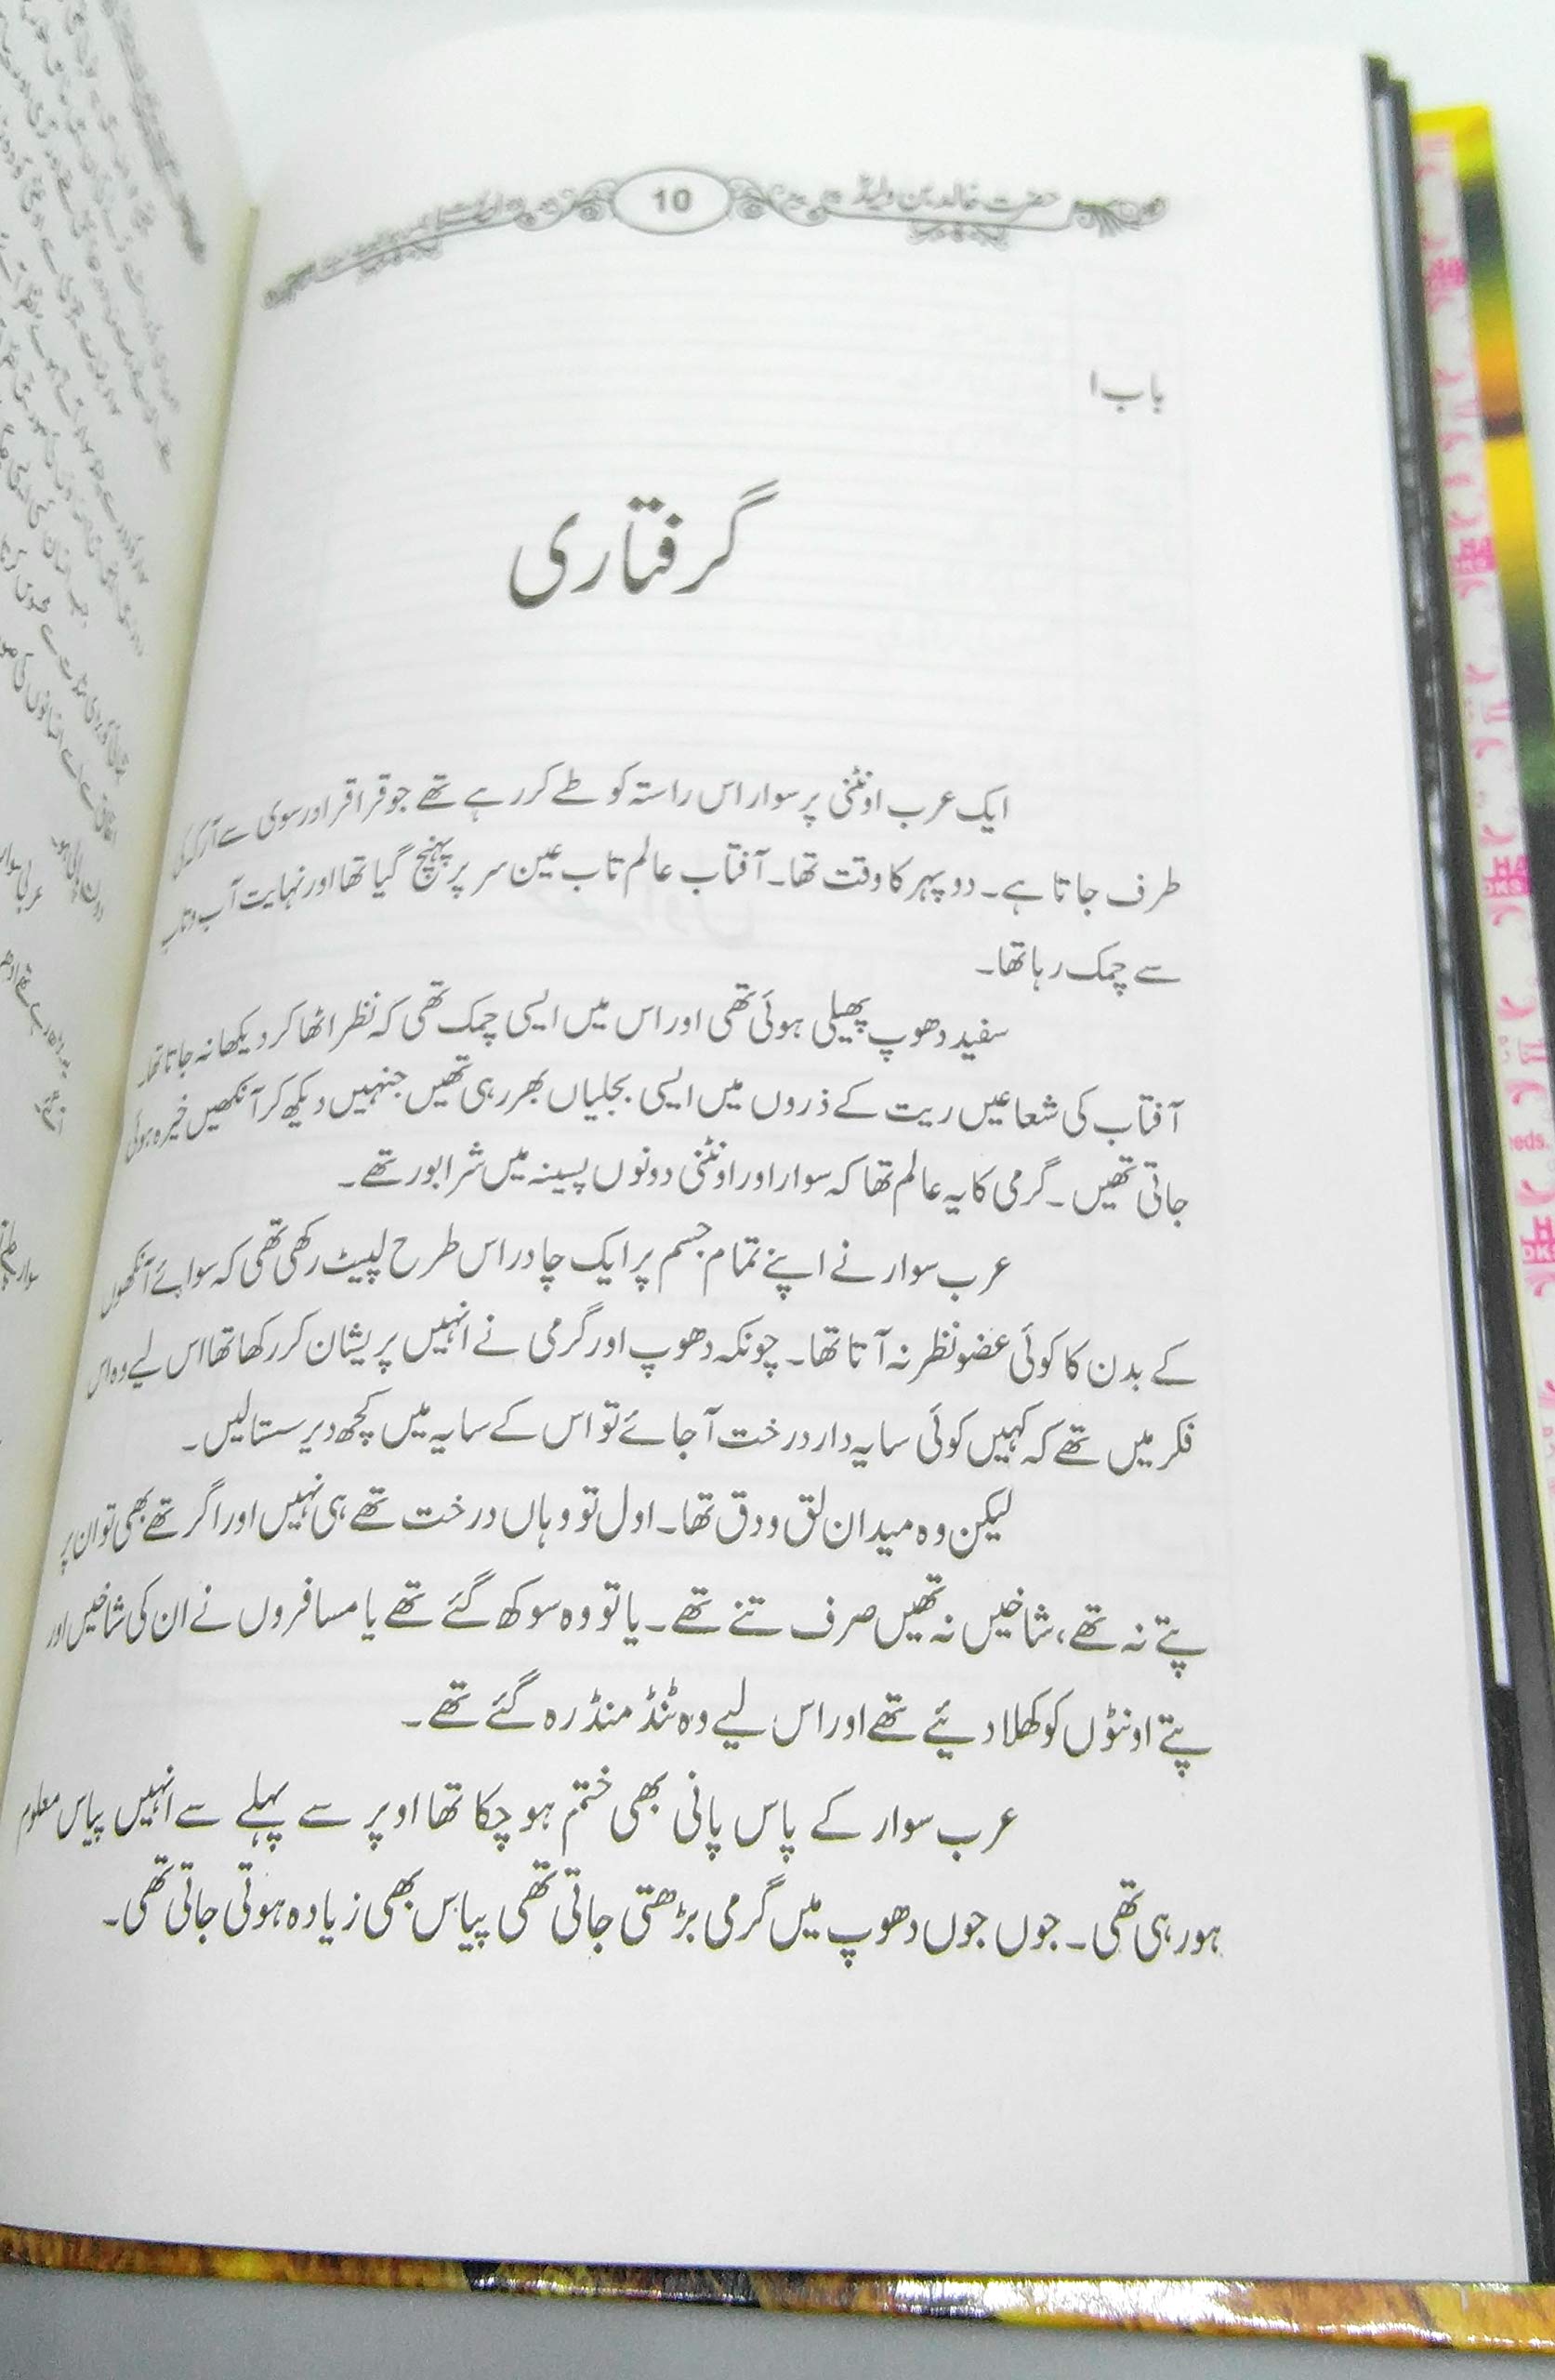 حضرت خالد بن ولیدؓ
10
باب ۱
گرفتاری
ایک عرب اونٹنی پر سوار اس راستہ کو طے کر رہے تھے جو قراقر اور سوی سے آرک کی
طرف جاتا ہے۔ دوپہر کا وقت تھا۔ آفتاب عالم تاب عین سر پر پہنچ گیا تھا اور نہایت آب و تاب
سے چمک رہا تھا۔
سفید دھوپ پھیلی ہوئی تھی اور اس میں ایسی چمک تھی کہ نظر اٹھا کر دیکھا نہ جاتا تھا۔
آفتاب کی شعاعیں ریت کے ذروں میں ایسی بجلیاں بھر رہی تھیں جنہیں دیکھ کر آنکھیں خیرہ ہوئی
جاتی تھیں۔ گرمی کا یہ عالم تھا کہ سوار اور اونٹنی دونوں پسینہ میں شرابور تھے۔
عرب سوار نے اپنے تمام جسم پر ایک چادر اس طرح لپیٹ رکھی تھی کہ سوائے آنکھوں
کے بدن کا کوئی عضو نظر نہ آتا تھا۔ چونکہ دھوپ اور گرمی نے انہیں پریشان کر رکھا تھا اس لیے وہ اس
فکر میں تھے کہ کہیں کوئی سایہ دار درخت آ جائے تو اس کے سایہ میں کچھ دیر سستا لیں۔
لیکن وہ میدان لق و دق تھا۔ اول تو وہاں درخت تھے ہی نہیں اور اگر تھے بھی تو ان پر
پتے نہ تھے، شاخیں نہ تھیں صرف تنے تھے۔ یا تو وہ سوکھ گئے تھے یا مسافروں نے ان کی شاخیں اور
پتے اونٹوں کو کھلا دیئے تھے اور اس لیے وہ ٹنڈ منڈ رہ گئے تھے۔
عرب سوار کے پاس پانی بھی ختم ہو چکا تھا اوپر سے پہلے سے انہیں پیاس معلوم
ہو رہی تھی۔ جوں جوں دھوپ میں گرمی بڑھتی جاتی تھی پیاس بھی زیادہ ہوتی جاتی تھی۔